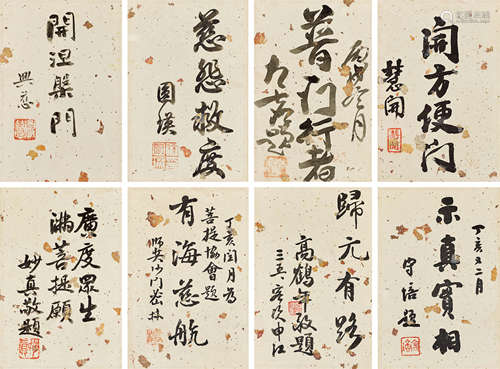 開方便門
慧開
丙戌冬月
普門行者
慈悲救度
圓瑛
開涅槃門
興慈
丁亥又二月
示真實相
守培題
歸元有路
高鶴年敬題
丁亥閏月為
菩提協會題
有海慈航
師奘沙門密林
廣度眾生
滿菩提願
妙真敬題